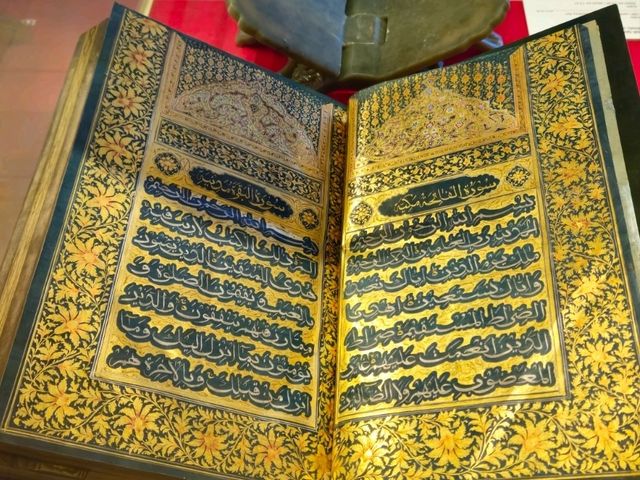 سورة الفاتحة مكية
بسم الله الرحمن الرحيم
الحمد لله رب العالمين الرحمن
الرحيم مالك يوم الدين اياك نعبد
واياك نستعين اهدنا
الصراط المستقيم صراط
الذين انعمت عليهم غير
المغضوب عليهم ولا الضالين
سورة البقرة
بسم الله الرحمن الرحيم
الم ذلك الكتاب لا ريب فيه
هدى للمتقين الذين يؤمنون
بالغيب ويقيمون الصلوة و
مما رزقناهم ينفقون والذين
يؤمنون بما انزل اليك وما
انزل من قبلك وبالاخرة هم